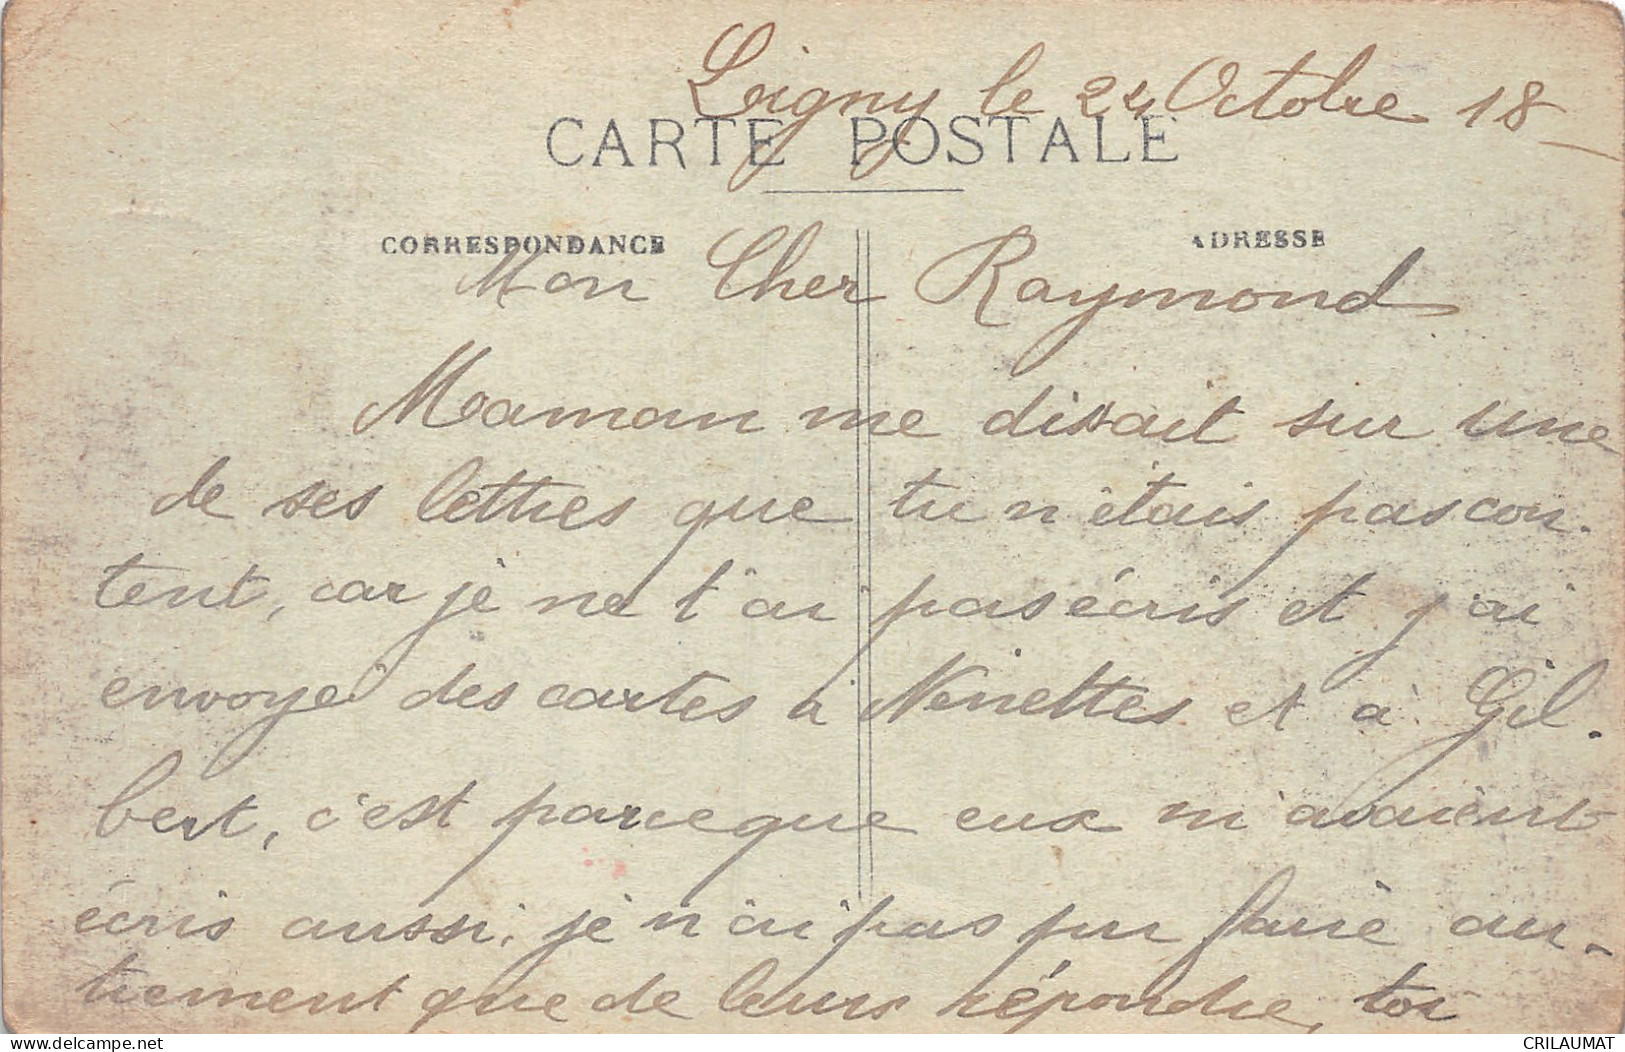 Ligny le 24 Octobre 18
CARTE POSTALE
CORRESPONDANCE
ADRESSE
Mon Cher Raymond
Maman me disait sur une
de ses lettres que tu n'étais pas con-
tent, car je ne t'ai pas écris et j'ai
envoyé des cartes à Ninettes et à Gil-
bert, c'est parceque eux m'avaient
écris aussi, je n'ai pas pu faire au-
trement que de leurs répondre, toi
delcampe.net
CRILAUMAT